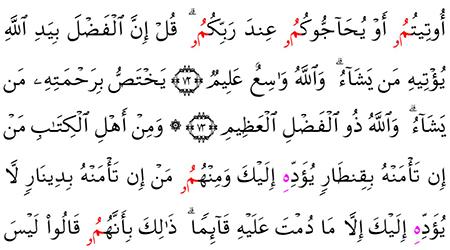 أُوتِيتُمُۥ أَوْ يُحَآجُّوكُمُۥ عِندَ رَبِّكُمُۥ ۗ قُلْ إِنَّ ٱلْفَضْلَ بِيَدِ ٱللَّهِ
يُؤْتِيهِ مَن يَشَآءُ ۗ وَٱللَّهُ وَٰسِعٌ عَلِيمٌ ﴿٧٢﴾ يَخْتَصُّ بِرَحْمَتِهِۦ مَن
يَشَآءُ ۗ وَٱللَّهُ ذُو ٱلْفَضْلِ ٱلْعَظِيمِ ﴿٧٣﴾ ۞ وَمِنَ أَهْلِ ٱلْكِتَٰبِ مَنْ
إِن تَأْمَنْهُ بِقِنطَارٍ يُؤَدِّهِۦ إِلَيْكَ وَمِنْهُمُۥ مَن إِن تَأْمَنْهُ بِدِينَارٍ لَّا
يُؤَدِّهِۦ إِلَيْكَ إِلَّا مَا دُمْتَ عَلَيْهِ قَآئِمًا ۗ ذَٰلِكَ بِأَنَّهُمُۥ قَالُوا۟ لَيْسَ